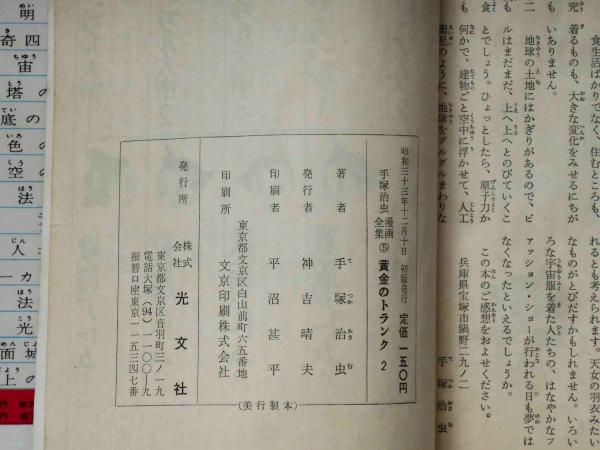 食生活ばかりでなく、住むところも、
着るものも、大きな変化をみせるにちが
いありません。
地球の土地にはかぎりがあるので、ビ
ルはまだまだ、上へ上へとのびていくこ
とでしょう。ひょっとしたら、原子力か
何かで、建物ごと空中に浮かせて、人工
衛星のように、地球をグルグルまわりな
れるとも考えられます。天女の羽衣みたい
なものがとびだすかもしれません。いろい
ろな宇宙服を着た人たちの、はなやかなフ
アッション・ショーが行われる日も夢では
なくなったといえるでしょうか。
この本のご感想をおよせください。
兵庫県宝塚市鍋野二九ノ二
手塚治虫
昭和三十三年十二月十日 初版発行 定価 一五〇円
手塚治虫漫画全集⑤ 黄金のトランク 2
著者 手塚治虫
発行者 神吉晴夫
印刷者 平沼甚平
東京都文京区白山前町六五番地
印刷所 文京印刷株式会社
発行所 株式会社 光文社
東京都文京区音羽町三ノ一九
電話大塚(94)一一〇〇—九
振替口座東京一一五三四七番
(美行製本)
明
奇四
宙
塔の
底の
色の
空の
法
人
カー
法
光
面城
上の